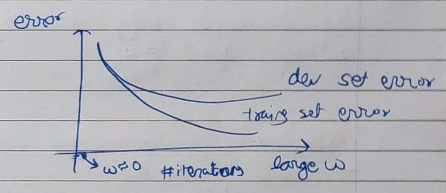 error
dev set error
traing set error
w≈0 #iterations large w